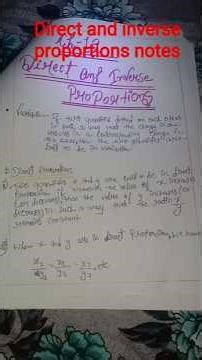 Direct and inverse
proportions notes
Ch-13
Direct And Inverse
Proportions
Variation: If two quantities depend on each other
in such a way that the change in one
results in a corresponding change in
the other, the two quantities are
said to be in variation
Direct Proportion
Two quantities x and y are said to be in direct
proportion if
the value of x increases
(or decreases) then the value of y increases (or
decreases) in such a way that the ratio x/y
remains constant.
When x and y are in direct proportion, we have
x₁/y₁ = x₂/y₂ = x₃/y₃, etc